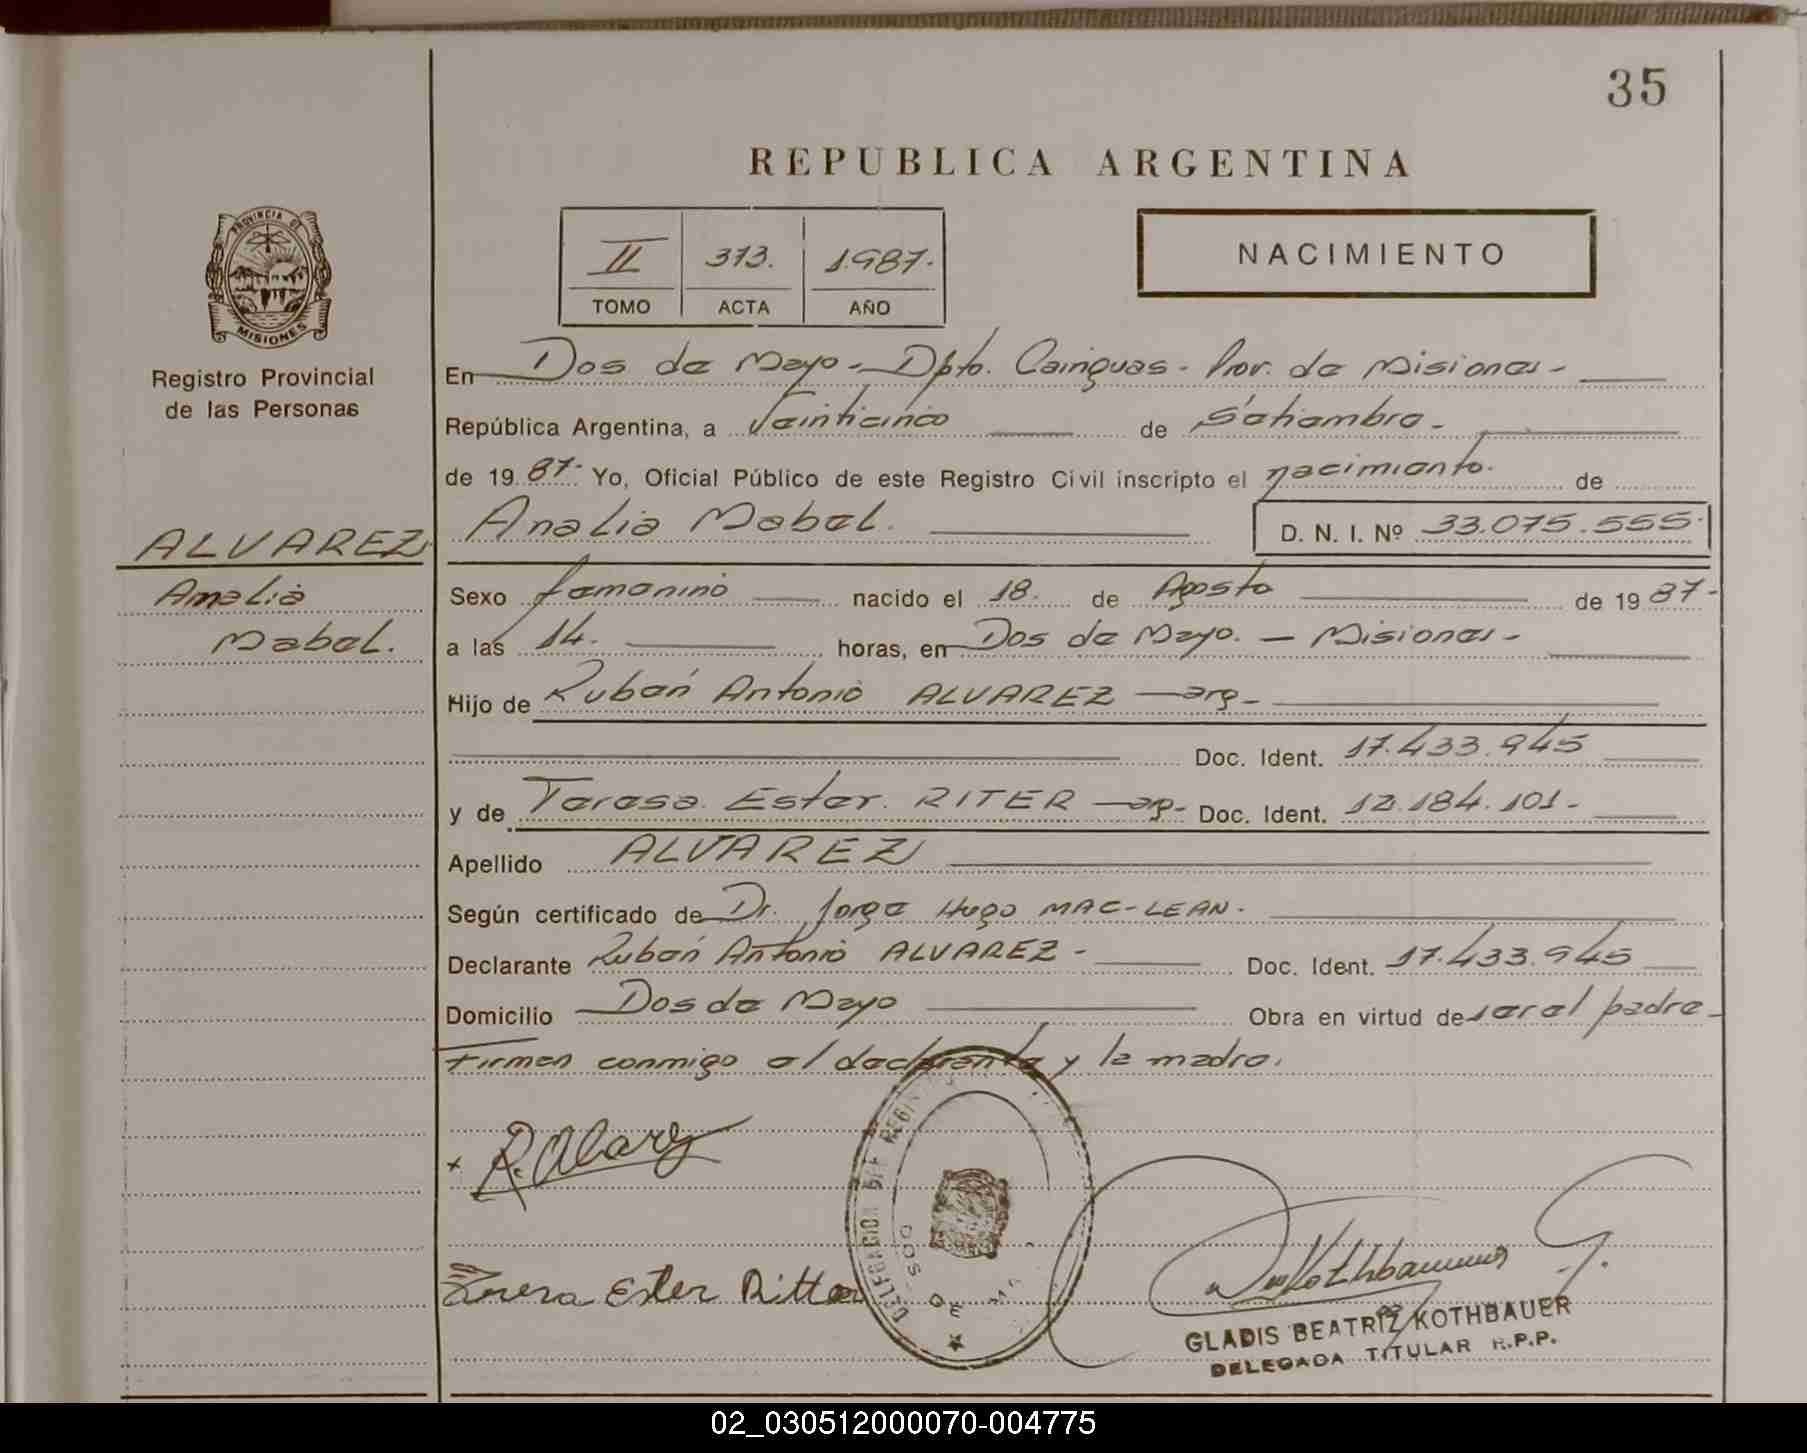 35
REPUBLICA ARGENTINA
II 373. 1.987.
TOMO ACTA AÑO
NACIMIENTO
PROVINCIA DE
MISIONES
Registro Provincial
de las Personas
ALVAREZ
Analia
Mabel.
En Dos de Mayo - Dpto. Cainguas - Prov. de Misiones -
República Argentina, a Veinticinco de Setiembre -
de 19 87- Yo, Oficial Público de este Registro Civil inscripto el nacimiento. de
Analia Mabel. D. N. I. Nº 33.075.555-
Sexo femenino nacido el 18. de Agosto de 19 87-
a las 14. horas, en Dos de Mayo. - Misiones -
Hijo de Rubén Antonio ALVAREZ - arg -
Doc. Ident. 17.433.945
y de Teresa Ester. RITER - arg - Doc. Ident. 12.184.101 -
Apellido ALVAREZ
Según certificado de Dr. Jorge Hugo MAC-LEAN -
Declarante Rubén Antonio ALVAREZ - Doc. Ident. 17.433.945
Domicilio Dos de Mayo Obra en virtud de ser el padre -
Firman conmigo el declarante y la madre.
x R. Alvarez
DELEGACION DEL REGIS
DOS DE MA
Ester Ritter
Kothbauer G.
GLADIS BEATRIZ KOTHBAUER
DELEGADA TITULAR R.P.P.
02_030512000070-004775